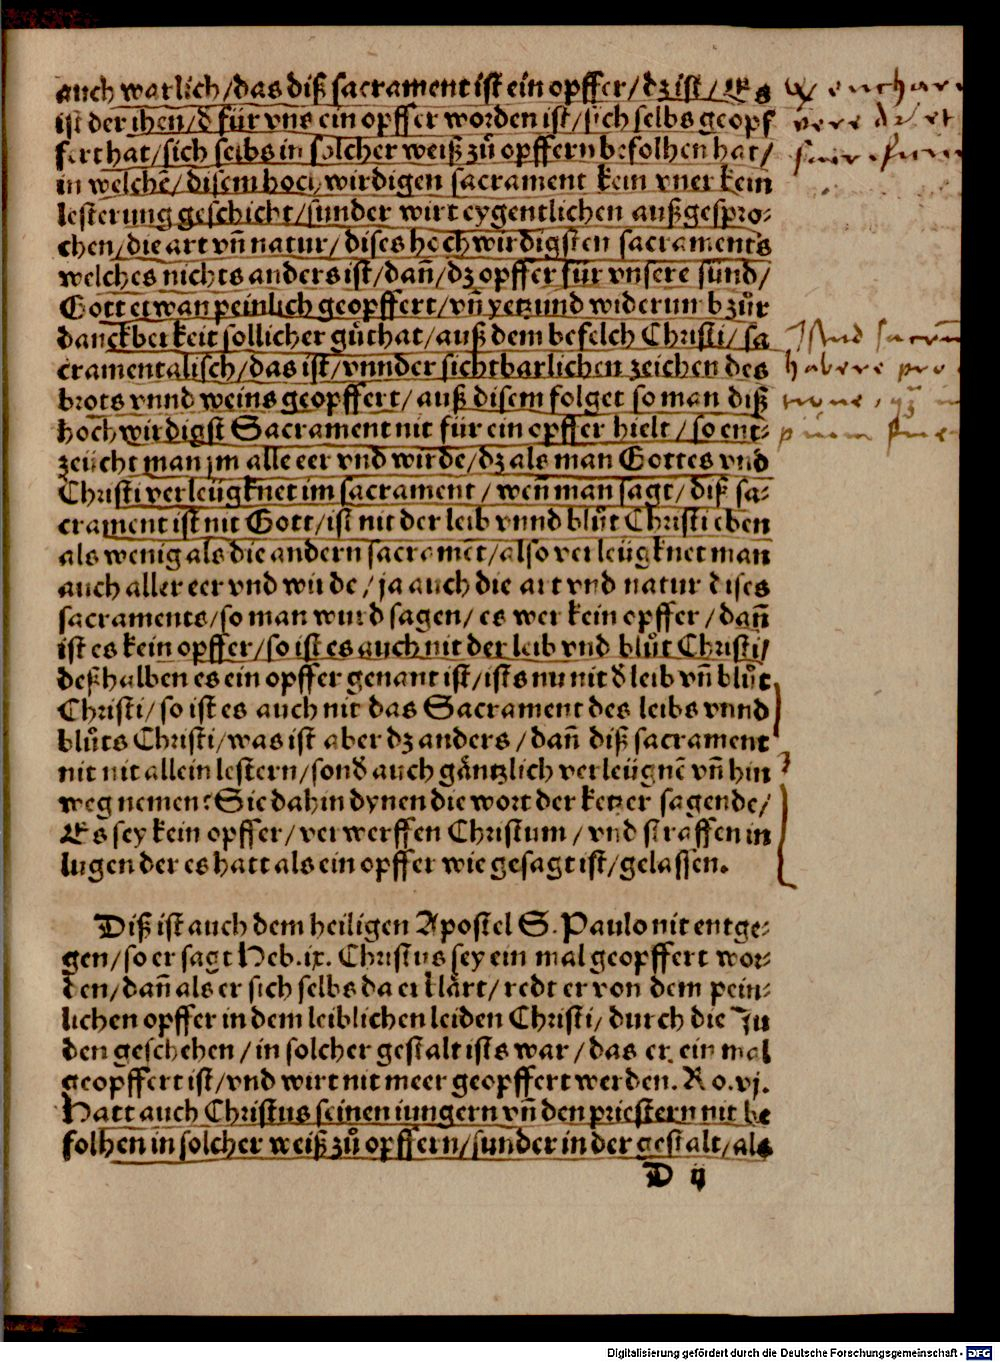 auch warlich/das diß sacrament ist ein opffer/dz ist/Es
ist der ihen/d̕ für vns ein opffer worden ist/sich selbs geopf
fert hat/sich selbs in solcher weiß zů opffern befolhen hat/
in welchē/disem hochwirdigen sacrament kein vner kein
lesterung geschicht/sunder wirt eygentlichen außgespro⸗
chen/die art vn̄ natur/dises hochwirdigsten sacraments
welches nichts anders ist/dan̄/dz opffer für vnsere sünd/
Gott etwan peinlich geopffert/vn̄ yetzund widerumb zůr
danckberkeit sollicher gůthat/auß dem befelch Christi/sa
cramentalisch/das ist/vnnder sichtbarlichen zeichen des
brots vnnd weins geopffert/auß disem folget so man diß
hochwirdigst Sacrament nit für ein opffer hielt/so ent⸗
zeücht man jm alle eer vnd wirde/dz als man Gottes vnd
Christi verleügknet im sacrament/wen̄ man sagt/diß sa⸗
crament ist nit Gott/ist nit der leib vnnd blůt Christi eben
als wenig als die andern sacramēt/also verleügknet man
auch aller eer vnd wirde/ja auch die art vnd natur dises
sacraments/so man wurd sagen/es wer kein opffer/dan̄
ist es kein opffer/so ist es auch nit der leib vnd blůt Christi/
deßhalben es ein opffer genant ist/ists nu nit d̕ leib vn̄ blůt
Christi/so ist es auch nit das Sacrament des leibs vnnd
blůts Christi/was ist aber dz anders/dan̄ diß sacrament
nit nit allein lestern/sond̕ auch gäntzlich verleügnē vn̄ hin
weg nemen? Sie dahin dynen die wort der ketzer sagende/
Es sey kein opffer/verwerffen Christum/vnd straffen in
lugen der es hatt als ein opffer wie gesagt ist/gelassen.
Diß ist auch dem heiligen Apostel S. Paulo nit entge⸗
gen/so er sagt Heb.ix. Christus sey ein mal geopffert wor⸗
den/dan̄ als er sich selbs da erklärt/redt er von dem pein⸗
lichen opffer in dem leiblichen leiden Christi/durch die Ju
den geschehen/in solcher gestalt ists war/das er ein mal
geopffert ist/vnd wirt nit meer geopffert werden. Ro.vj.
Hatt auch Christus seinen iungern vn̄ den priestern nit be
folhen in solcher weiß zů opffern/sunder in der gestalt/als
D ij
Digitalisierung gefördert durch die Deutsche Forschungsgemeinschaft - DFG